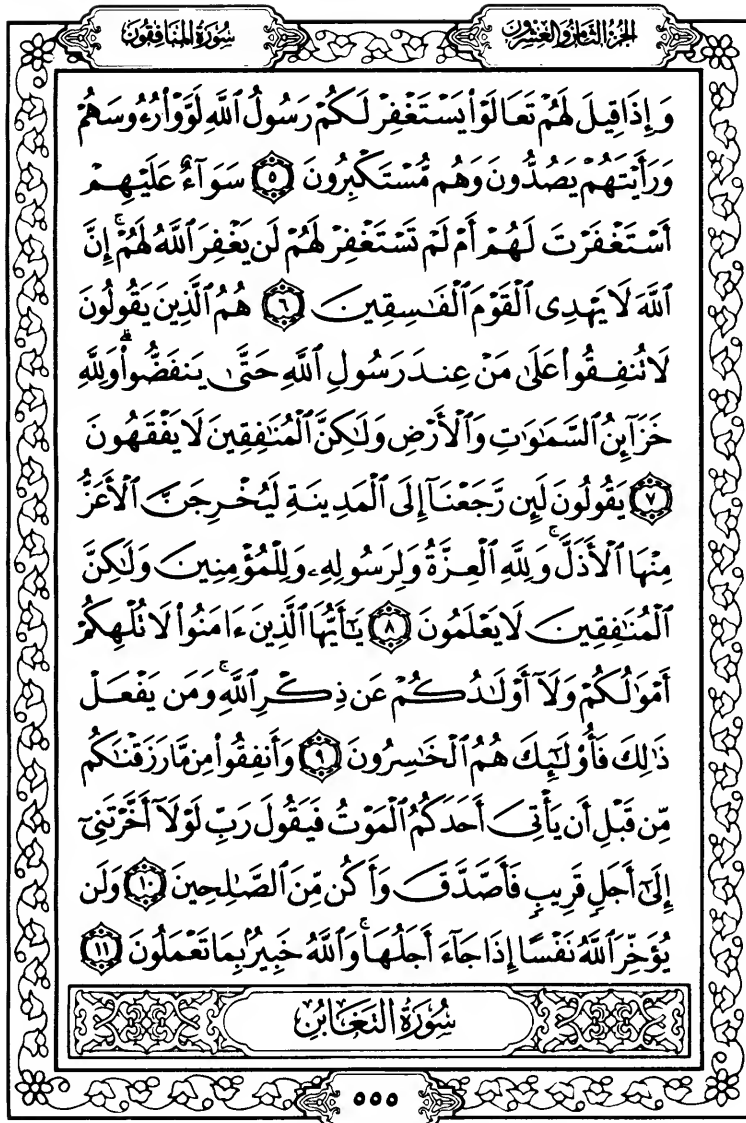 سُورَةُ المُنَافِقُون
الجُزءُ الثَّامِنُ وَالعِشْرُونَ
وَإِذَا قِيلَ لَهُمْ تَعَالَوْا۟ يَسْتَغْفِرْ لَكُمْ رَسُولُ ٱللَّهِ لَوَّوْا۟ رُءُوسَهُمْ
وَرَأَيْتَهُمْ يَصُدُّونَ وَهُم مُّسْتَكْبِرُونَ ٥ سَوَآءٌ عَلَيْهِمْ
أَسْتَغْفَرْتَ لَهُمْ أَمْ لَمْ تَسْتَغْفِرْ لَهُمْ لَن يَغْفِرَ ٱللَّهُ لَهُمْ ۚ إِنَّ
ٱللَّهَ لَا يَهْدِى ٱلْقَوْمَ ٱلْفَٰسِقِينَ ٦ هُمُ ٱلَّذِينَ يَقُولُونَ
لَا تُنفِقُوا۟ عَلَىٰ مَنْ عِندَ رَسُولِ ٱللَّهِ حَتَّىٰ يَنفَضُّوا۟ ۗ وَلِلَّهِ
خَزَآئِنُ ٱلسَّمَٰوَٰتِ وَٱلْأَرْضِ وَلَٰكِنَّ ٱلْمُنَٰفِقِينَ لَا يَفْقَهُونَ
٧ يَقُولُونَ لَئِن رَّجَعْنَآ إِلَى ٱلْمَدِينَةِ لَيُخْرِجَنَّ ٱلْأَعَزُّ
مِنْهَا ٱلْأَذَلَّ ۚ وَلِلَّهِ ٱلْعِزَّةُ وَلِرَسُولِهِۦ وَلِلْمُؤْمِنِينَ وَلَٰكِنَّ
ٱلْمُنَٰفِقِينَ لَا يَعْلَمُونَ ٨ يَٰٓأَيُّهَا ٱلَّذِينَ ءَامَنُوا۟ لَا تُلْهِكُمْ
أَمْوَٰلُكُمْ وَلَآ أَوْلَٰدُكُمْ عَن ذِكْرِ ٱللَّهِ ۚ وَمَن يَفْعَلْ
ذَٰلِكَ فَأُو۟لَٰٓئِكَ هُمُ ٱلْخَٰسِرُونَ ٩ وَأَنفِقُوا۟ مِن مَّا رَزَقْنَٰكُم
مِّن قَبْلِ أَن يَأْتِىَ أَحَدَكُمُ ٱلْمَوْتُ فَيَقُولَ رَبِّ لَوْلَآ أَخَّرْتَنِىٓ
إِلَىٰٓ أَجَلٍ قَرِيبٍ فَأَصَّدَّقَ وَأَكُن مِّنَ ٱلصَّٰلِحِينَ ١٠ وَلَن
يُؤَخِّرَ ٱللَّهُ نَفْسًا إِذَا جَآءَ أَجَلُهَا ۚ وَٱللَّهُ خَبِيرٌۢ بِمَا تَعْمَلُونَ ١١
سُورَةُ التَّغَابُنِ
٥٥٥